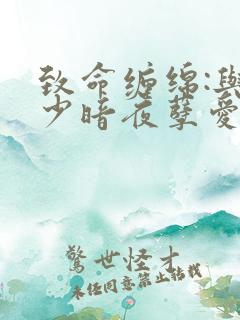 致命缠绵:与
少暗夜孽爱
驚世怪才
未经同意禁止转载